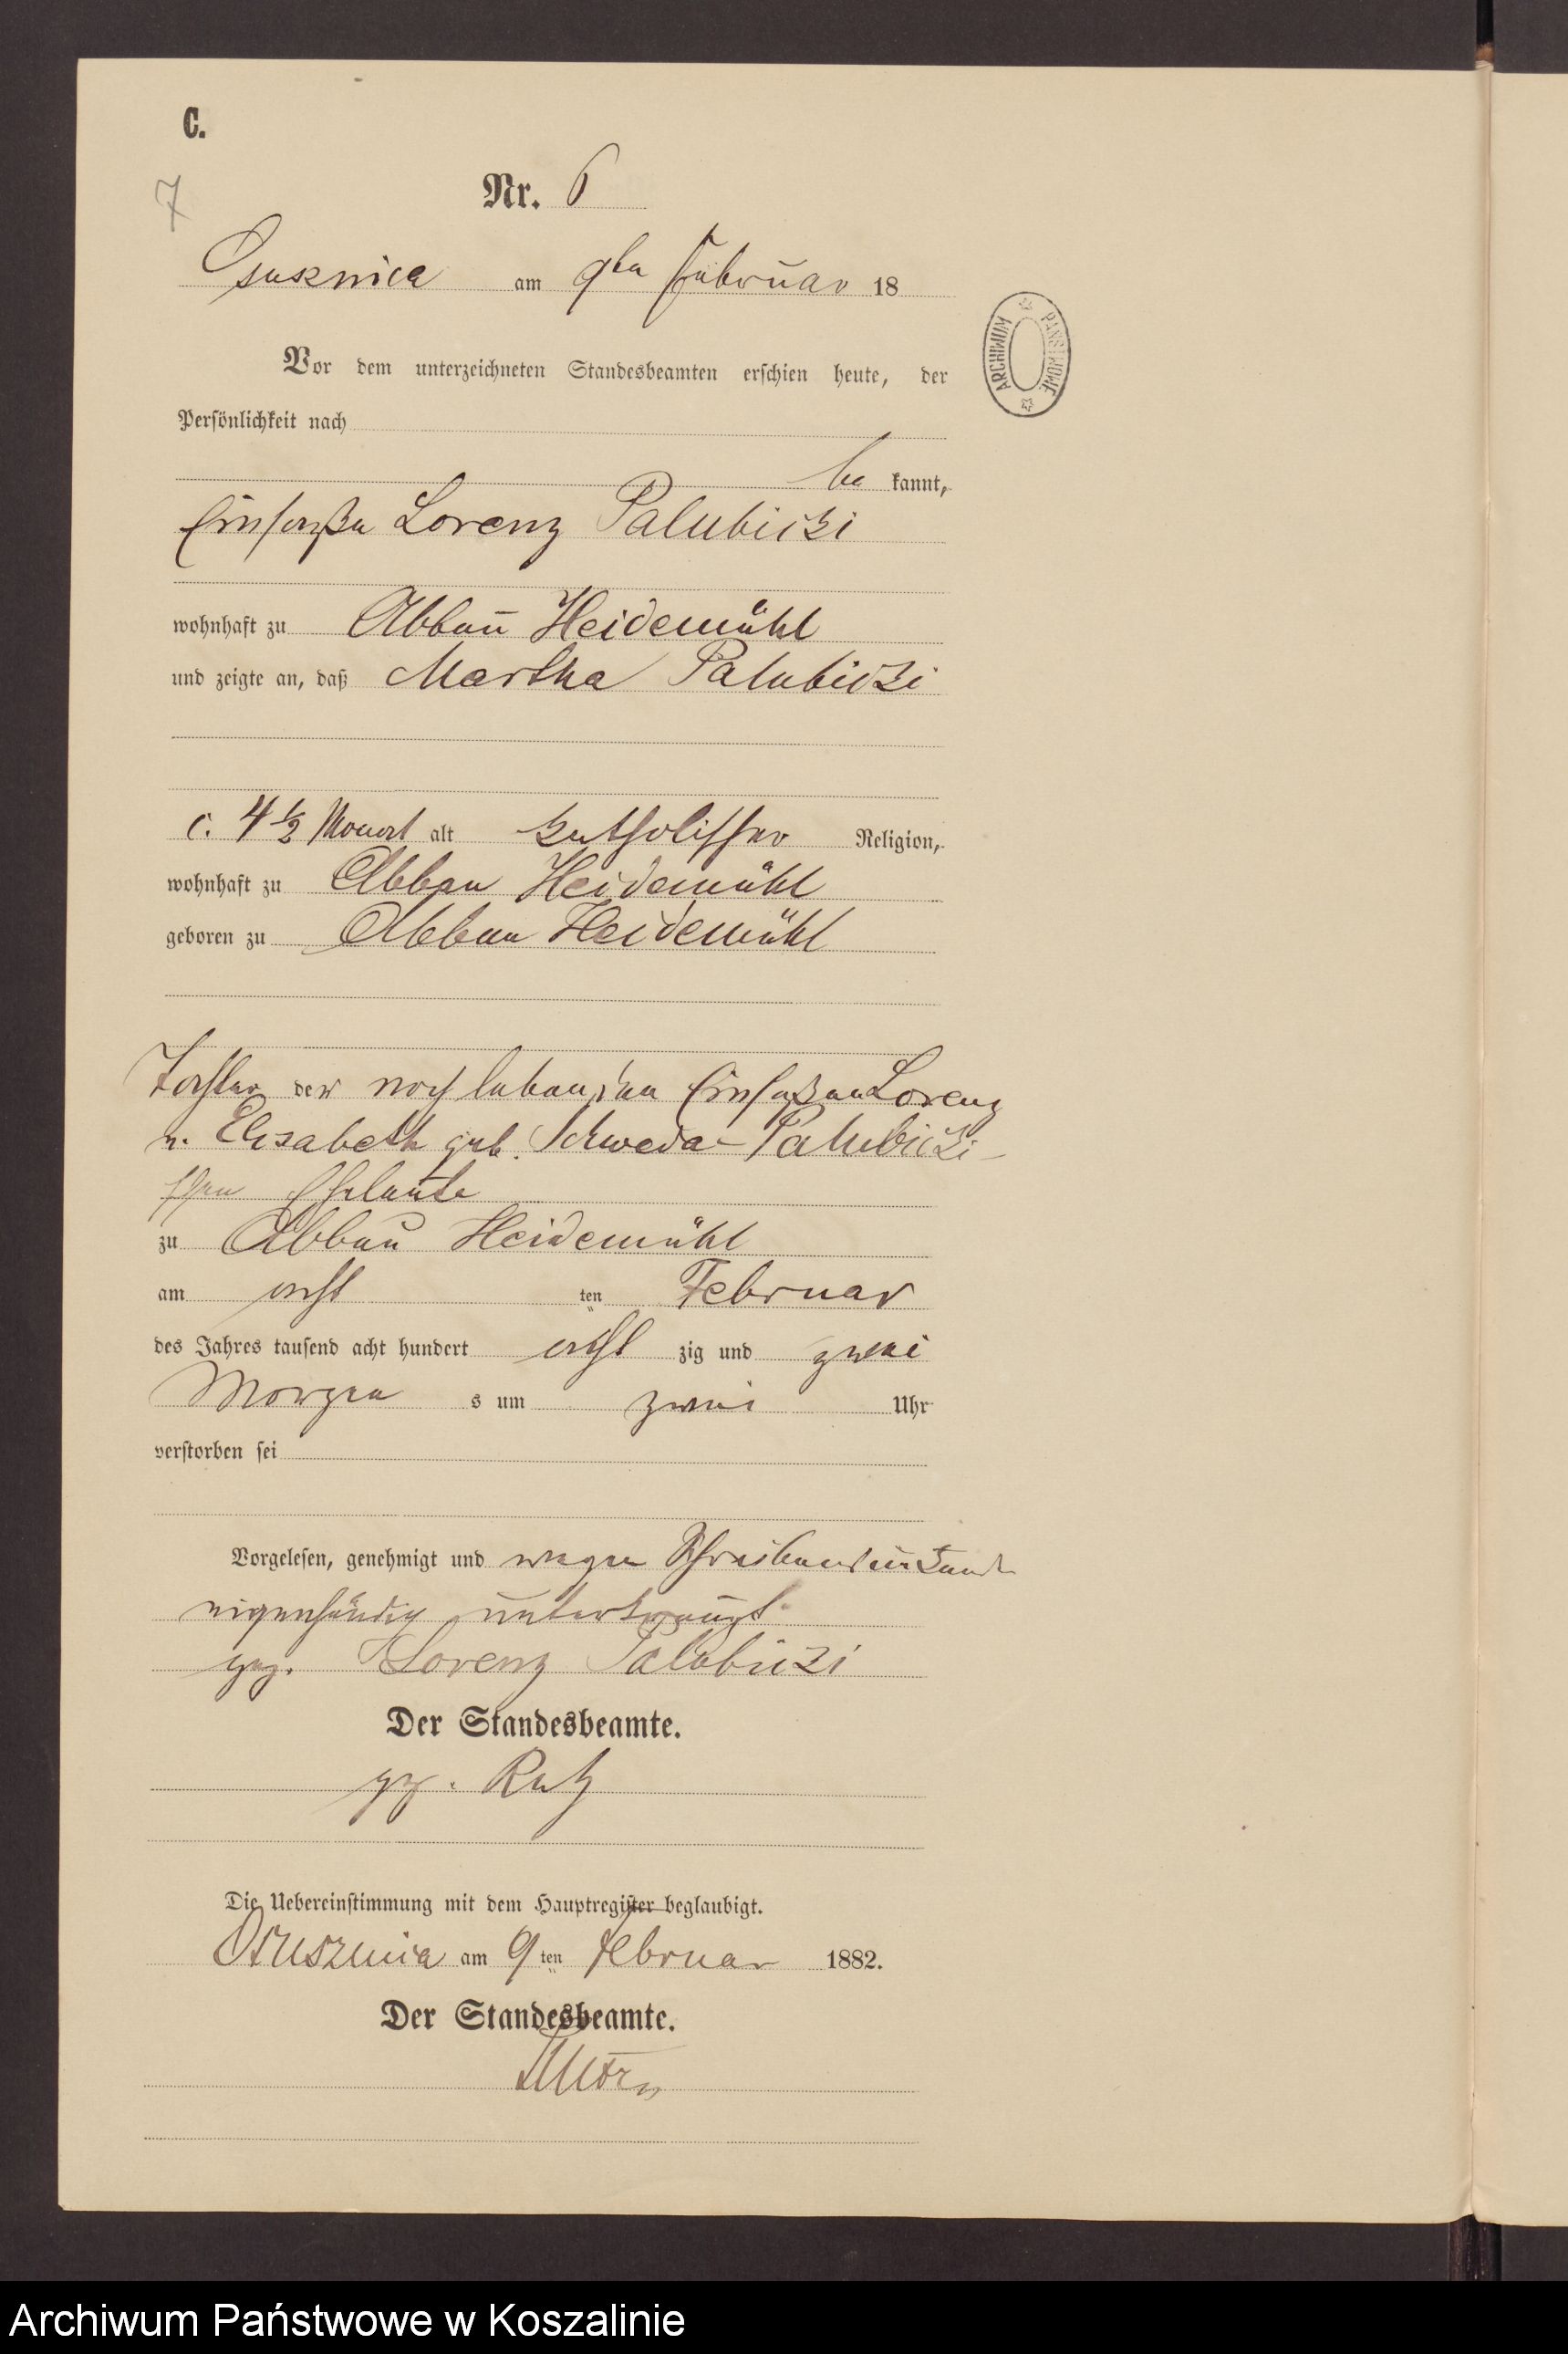 C.
7
Nr. 6
am 9ten Februar 18
ARCHIWUM PAŃSTWOWE
Vor dem unterzeichneten Standesbeamten erschien heute, der
Persönlichkeit nach
be kannt,
Einsasse Lorenz Palubicki
wohnhaft zu Abbau Heidemühl
und zeigte an, daß Martha Palubicki
c. 4 1/2 Monat alt katholischer Religion,
wohnhaft zu Abbau Heidemühl
geboren zu Abbau Heidemühl
Tochter der noch lebenden Einsassen Lorenz
u. Elisabeth geb. Schweda-Palubicki-
schen Eheleute
zu Abbau Heidemühl
am acht ten Februar
des Jahres tausend acht hundert acht zig und zwei
Morgen s um zwei Uhr
verstorben sei
Vorgelesen, genehmigt und wegen
eigenhändig unterkreuzt
gez. Lorenz Palubicki
Der Standesbeamte.
gez. Rutz
Die Uebereinstimmung mit dem Hauptregister beglaubigt.
am 9 ten Februar 1882.
Der Standesbeamte.
Archiwum Państwowe w Koszalinie